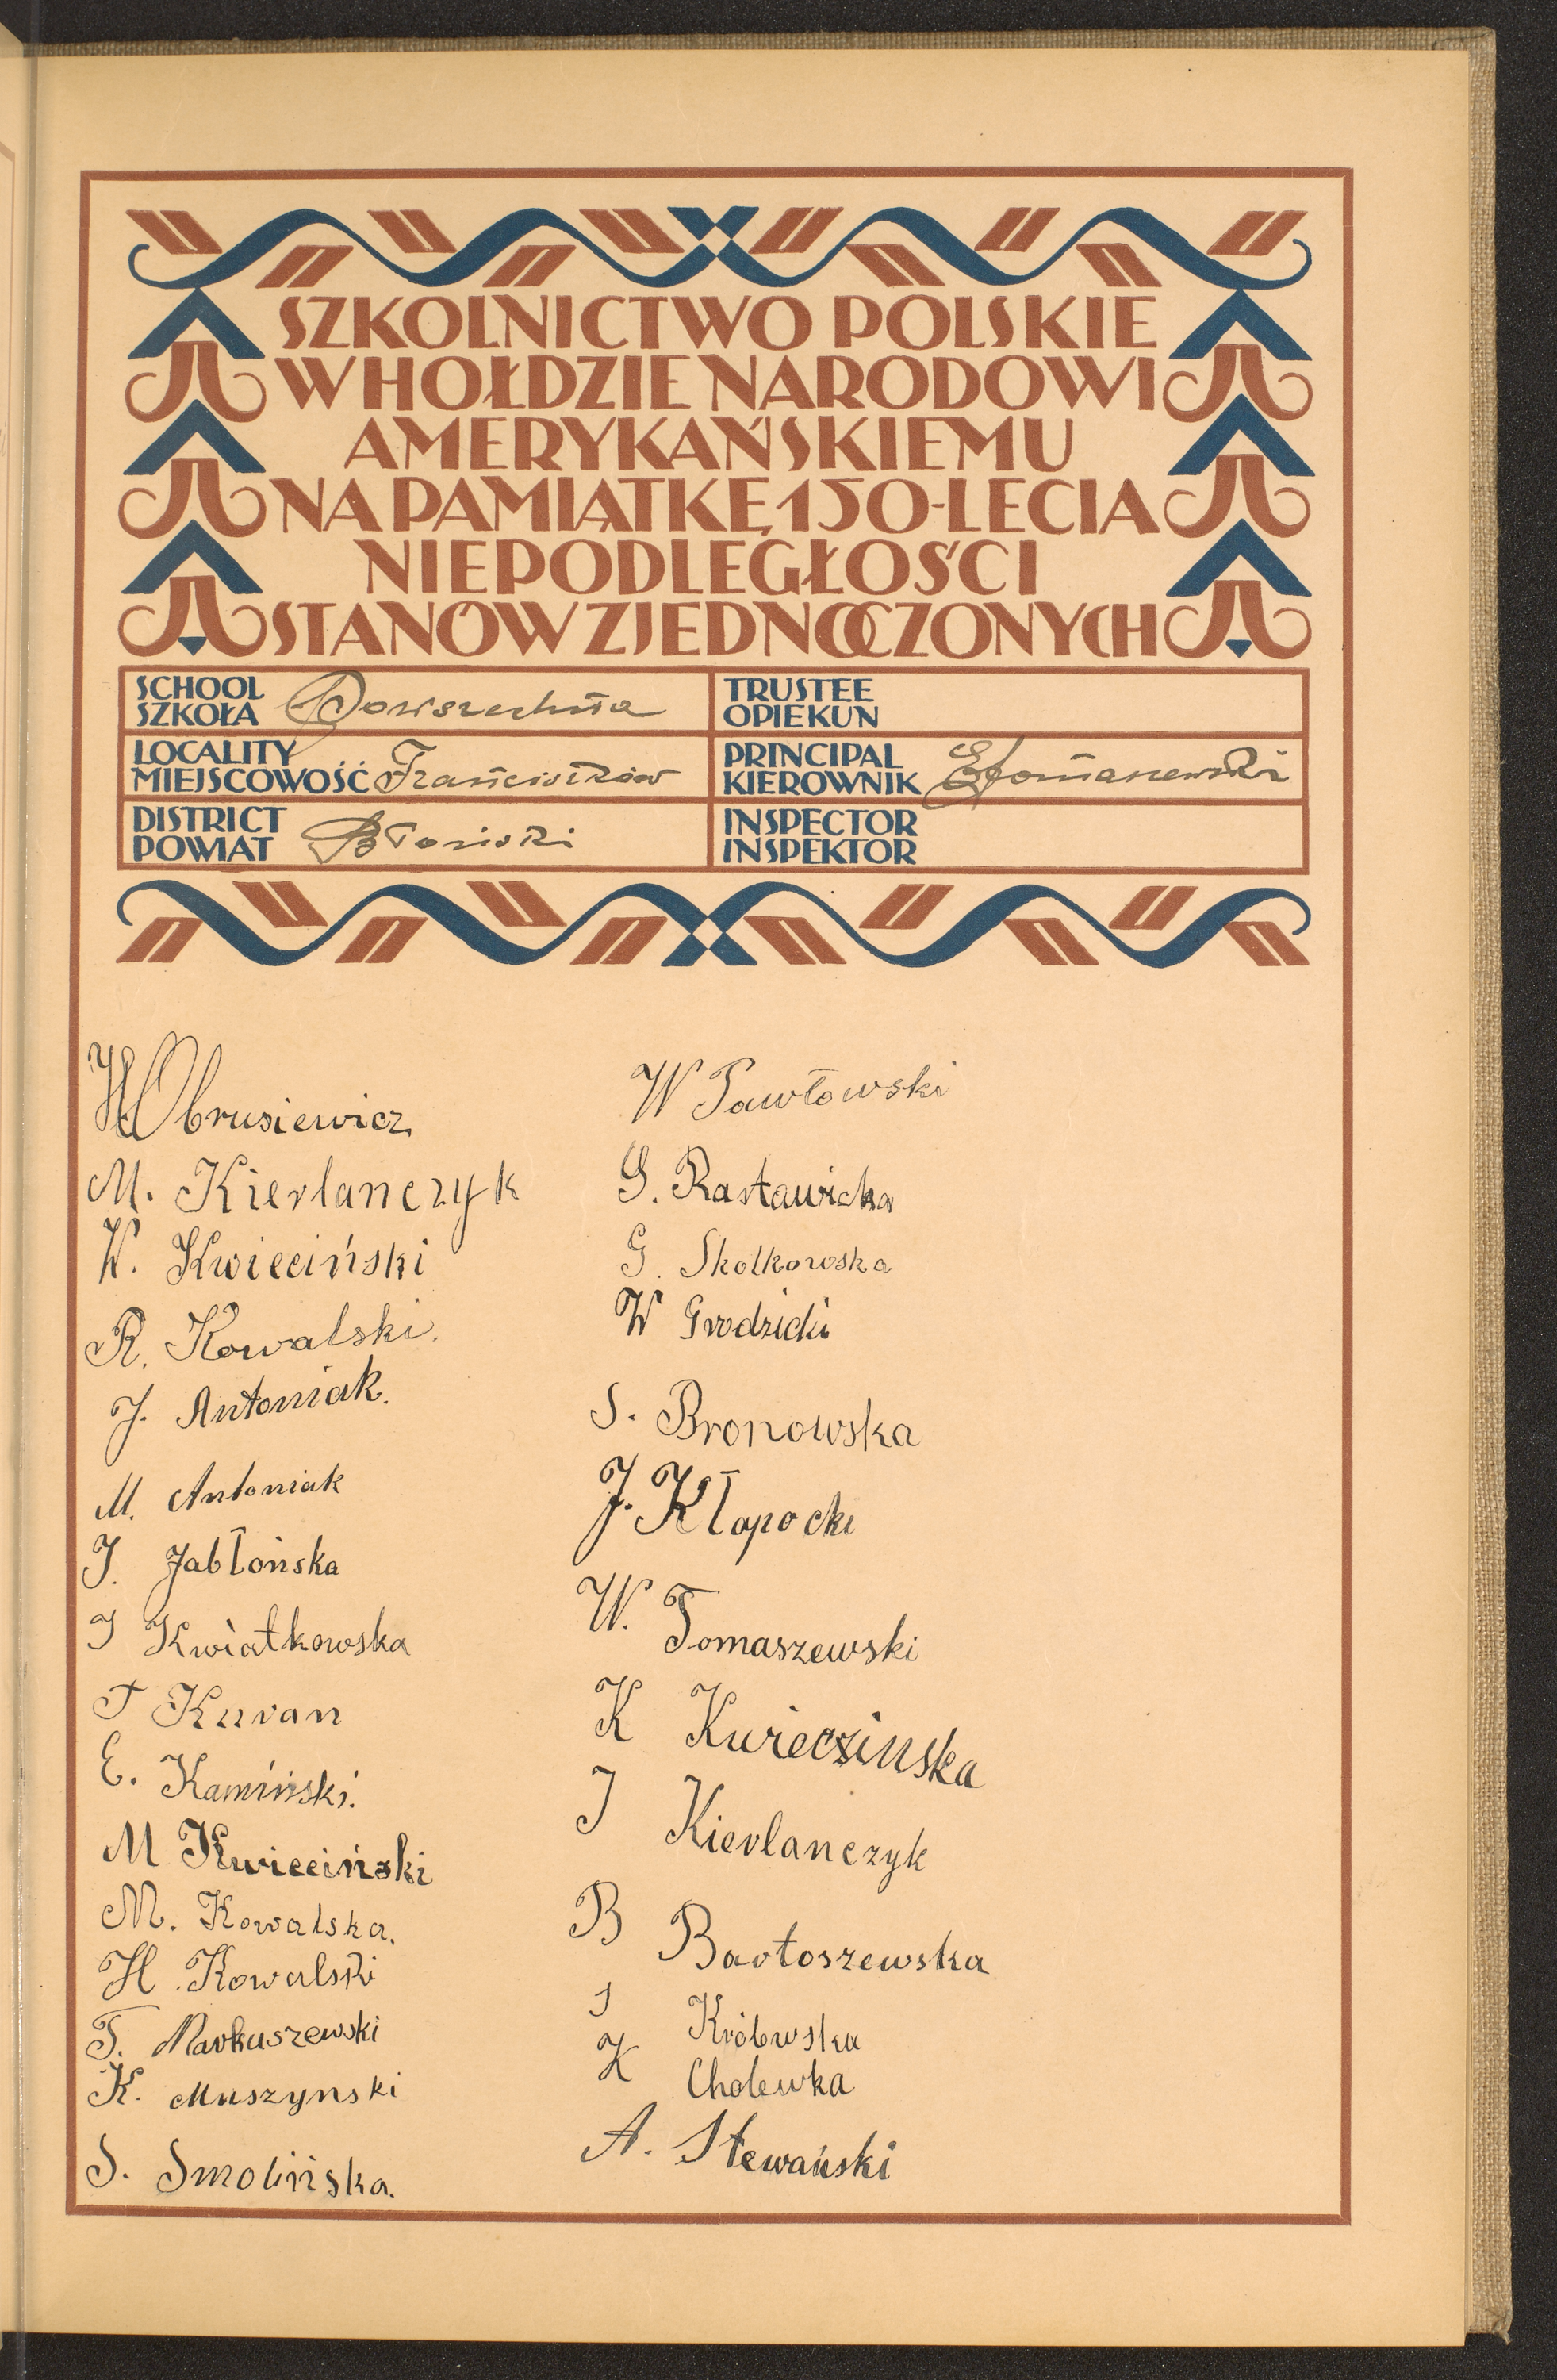 SZKOLNICTWO POLSKIE
W HOŁDZIE NARODOWI
AMERYKAŃSKIEMU
NA PAMIĄTKĘ 150-LECIA
NIEPODLEGŁOŚCI
STANÓW ZJEDNOCZONYCH
SCHOOL
SZKOŁA Powszechna
TRUSTEE
OPIEKUN
LOCALITY
MIEJSCOWOŚĆ Franciszków
PRINCIPAL
KIEROWNIK
DISTRICT
POWIAT Błoński
INSPECTOR
INSPEKTOR
H Obrusiewicz
M. Kierlanczyk
W. Kwieciński
R. Kowalski.
J. Antoniak.
M. Antoniak
J. Jabłońska
J Kwiatkowska
T Kuran
E. Kamiński.
M Kwieciński
M. Kowalska.
H. Kowalski
T. Markuszewski
K. Muszynski
S. Smolińska.
W Pawłowski
G. Rastawicka
G. Skolkowska
W Grodzicki
S. Bronowska
J. Kłopocki
W. Tomaszewski
K Kwieczinska
J Kierlanczyk
B Bartoszewska
J Królowska
K Cholewka
A. Stewański